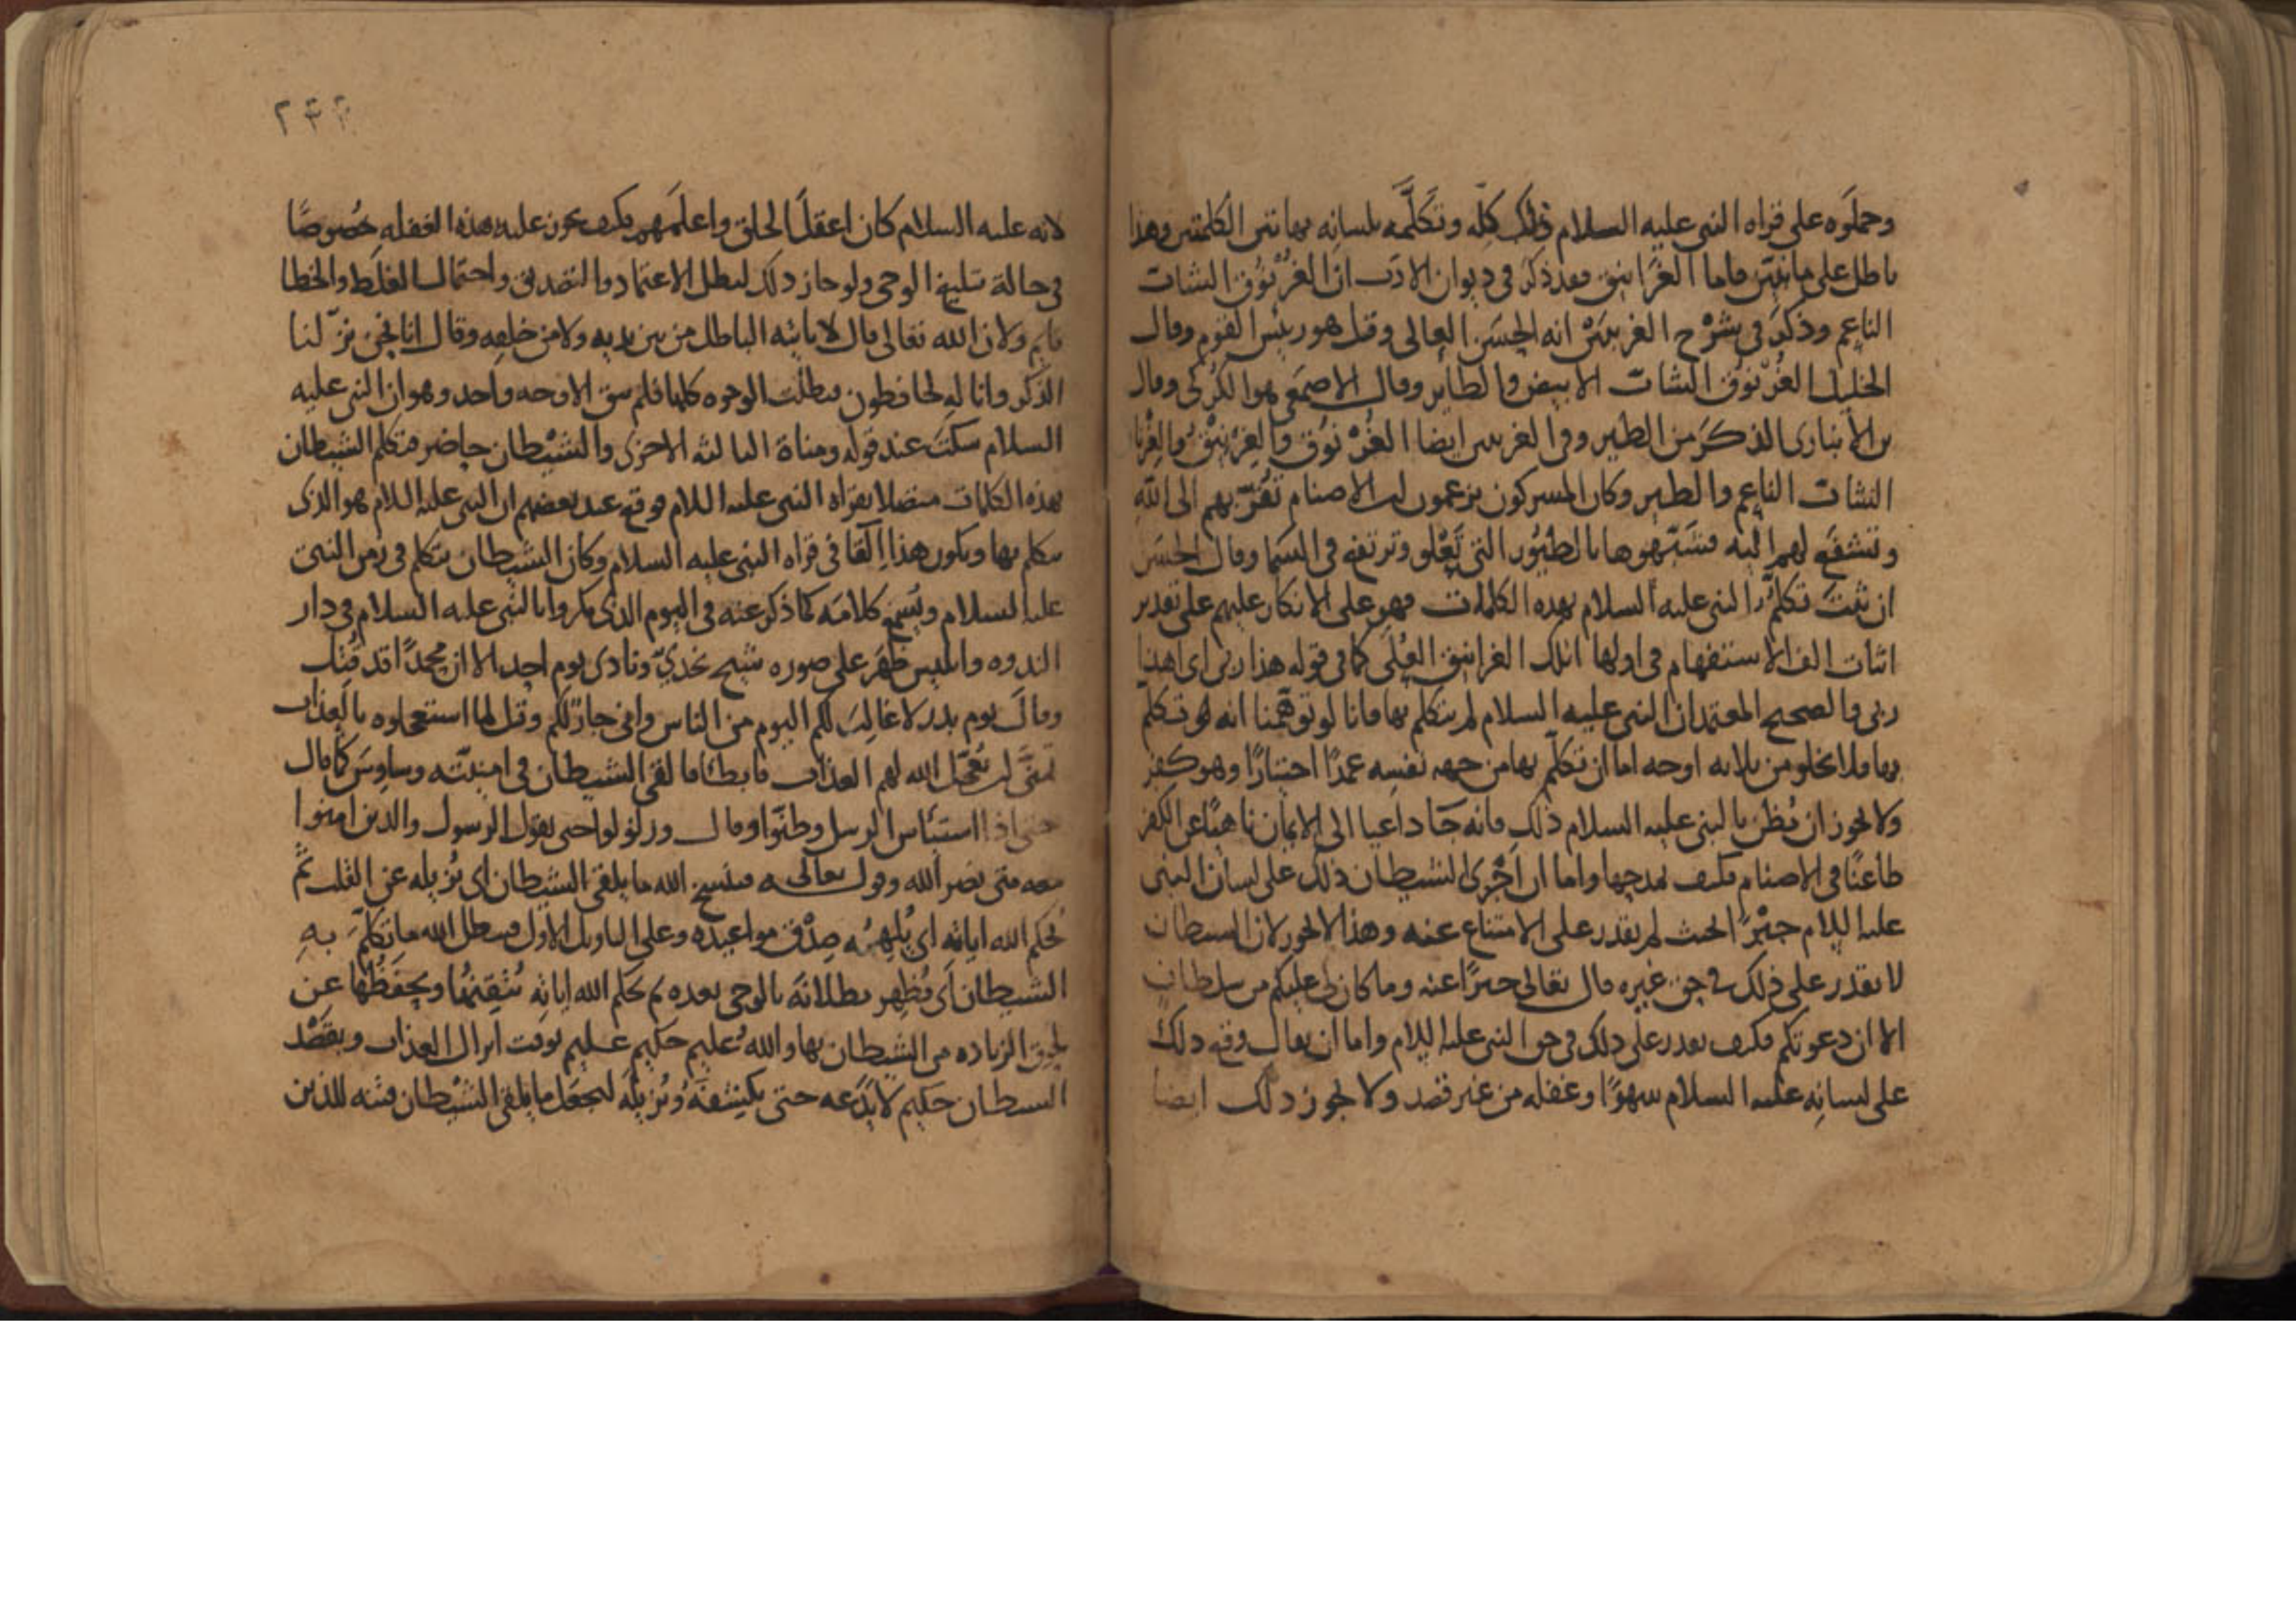 وحملوه على قراه النبى عليه السلام ذلك كله وتكلمه بلسانه بهاتين الكلمتين وهذا
باطل على ما نبين فاما الغرانيق فقد ذكر في ديوان الادب ان الغرنوق الشاب
الناعم وذكر في شرح الغريبين انه الحسن العالى وقيل هو رئيس القوم وقال
الخليل الغرنوق الشاب الابيض والطاير وقال الاصمعى هو الكركى وقال
بن الانبارى الذكر من الطير وفى الغريبين ايضا الغرنوق والغرنيق والغرنا
الشاب الناعم والطير وكان المشركون يزعمون ان الاصنام تقربهم الى الله
وتشفع لهم اليه فشبهوها بالطيور التى تعلو وترتفع فى السما وقال الحسن
ان ثبت تكلم النبى عليه السلام بهذه الكلمات فهو على الانكار عليهم على تقدير
اثبات الف الاستفهام فى اولها اتلك الغرانيق العلى كما فى قوله هذا ربى اى اهذا
ربى والصحيح المعتمد ان النبى عليه السلام لم يتكلم بها فانا لو توهمنا انه لو تكلم
بها فلا يخلو من ثلاثه اوجه اما ان تكلم بها من جهه نفسه عمدا اختيارا وهو كفر
ولا يجوز ان يظن بالنبى عليه السلام ذلك فانه جا داعيا الى الايمان ناهيا عن الكفر
طاعنا فى الاصنام فكيف يمدحها واما ان اجرى الشيطان ذلك على لسان النبى
عليه السلام جبرا بحيث لم يقدر على الامتناع عنه وهذا لا يجوز لان الشيطان
لا يقدر على ذلك فى حق غيره قال تعالى خبرا عنه وما كان لى عليكم من سلطان
الا ان دعوتكم فكيف يقدر على ذلك فى حق النبى عليه السلام واما ان يقال وقع ذلك
على لسانه عليه السلام سهوا وغفله من غير قصد ولا يجوز ذلك ايضا
لانه عليه السلام كان اعقل الخلق واعلمهم فكيف يجوز عليه هذه الغفله خصوصا
فى حالة تبليغ الوحى ولو جاز ذلك لبطل الاعتماد والتصديق واحتمال الغلط والخطا
قايم ولان الله تعالى قال لا ياتيه الباطل من بين يديه ولا من خلفه وقال انا نحن نزلنا
الذكر وانا له لحافظون فبطلت الوجوه كلها فلم يبق الا وجه واحد وهو ان النبى عليه
السلام سكت عند قوله ومناة الثالثه الاخرى والشيطان حاضر فتكلم الشيطان
بهذه الكلمات متصلا بقراه النبى عليه السلام فوقع عند بعضهم ان النبى عليه السلام هو الذى
تكلم بها ويكون هذا القا فى قراه النبى عليه السلام وكان الشيطان يتكلم فى زمن النبى
عليه السلام ويسمع كلامه كما ذكر عنه فى اليوم الذى مكروا بالنبى عليه السلام فى دار
الندوه وابليس ظهر على صوره شيخ نجدى ونادى يوم احد الا ان محمدا قد قتل
وقال يوم بدر لا غالب لكم اليوم من الناس وانى جار لكم وقيل لما استعجلوه بالعذاب
تمنى ان يعجل الله لهم العذاب فابطا فالقى الشيطان فى امنيته وساوس كما قال
حتى اذا استيئاس الرسل وظنوا وقال وزلزلوا حتى يقول الرسول والذين امنوا
معه متى نصر الله وقوله تعالى فينسخ الله ما يلقى الشيطان اى يزيله عن القلب ثم
يحكم الله اياته اى يلهمه صدق مواعيده وعلى التاويل الاول فيبطل الله ما تكلم به
الشيطان اى يظهر بطلانه بالوحى بعده ثم يحكم الله اياته يتقنها ويحفظها عن
لحوق الزياده من الشيطان بها والله عليم حكيم عليم بوقت انزال العذاب وبقصد
الشيطان حكيم لا يدعه حتى يكشفه ويزيله ليجعل ما يلقى الشيطان فتنه للذين